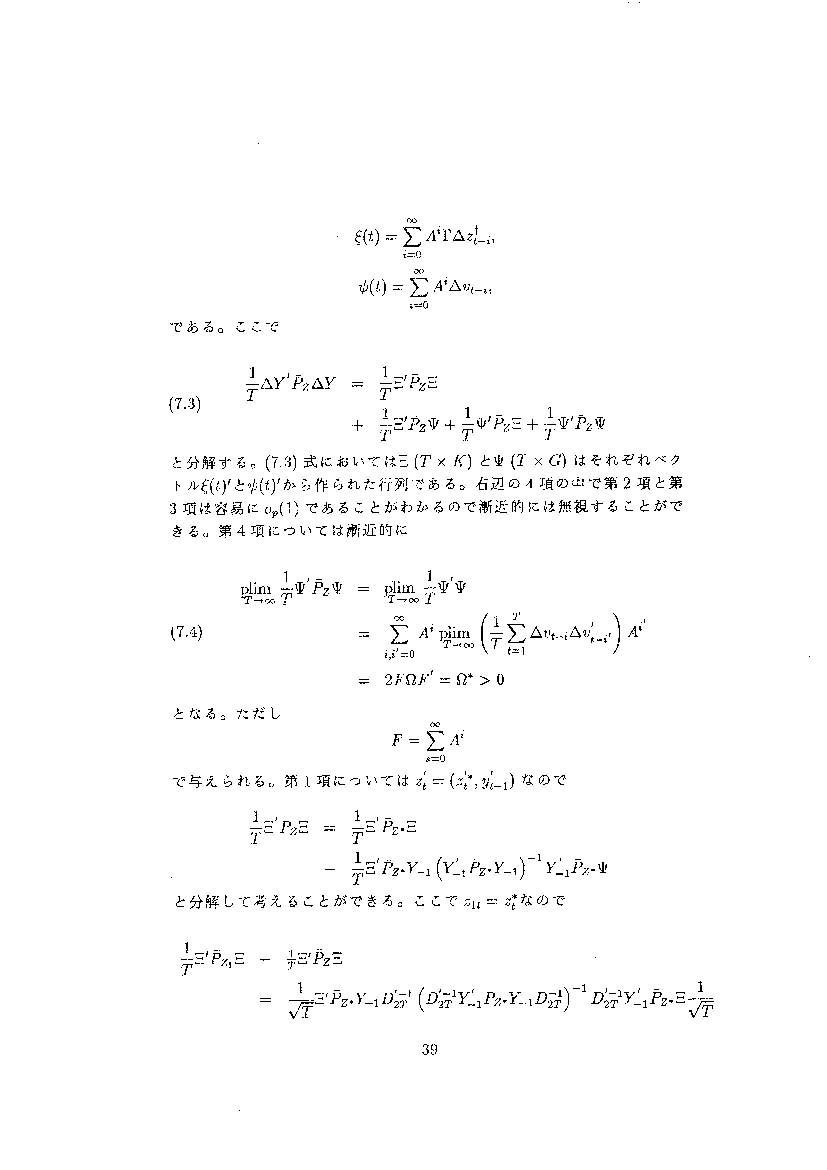 ξ(t) = ∑_{i=0}^{∞} A^i Γ Δz^†_{t−i},
ψ(t) = ∑_{i=0}^{∞} A^i Δv_{t−i},
である。ここで
(7.3) \frac{1}{T}ΔY′\bar{P}_Z ΔY = \frac{1}{T}Ξ′\bar{P}_Z Ξ
+ \frac{1}{T}Ξ′\bar{P}_Z Ψ + \frac{1}{T}Ψ′\bar{P}_Z Ξ + \frac{1}{T}Ψ′\bar{P}_Z Ψ
と分解する。(7.3) 式においてはΞ (T × K) とΨ (T × G) はそれぞれベク
トルξ(t)′とψ(t)′から作られた行列である。右辺の 4 項の中で第 2 項と第
3 項は容易に o_p(1) であることがわかるので漸近的には無視することがで
きる。第 4 項については漸近的に
plim_{T→∞} \frac{1}{T}Ψ′\bar{P}_Z Ψ = plim_{T→∞} \frac{1}{T}Ψ′Ψ
(7.4) = ∑_{i,i′=0}^{∞} A^i plim_{T→∞} ( \frac{1}{T} ∑_{t=1}^{T} Δv_{t−i} Δv′_{t−i′} ) A^{i′}
= 2FΩF′ = Ω* > 0
となる。ただし
F = ∑_{s=0}^{∞} A^i
で与えられる。第 1 項については z′_t = (z′*_t, y′_{t−1}) なので
\frac{1}{T}Ξ′P_Z Ξ = \frac{1}{T}Ξ′\bar{P}_{Z*} Ξ
− \frac{1}{T}Ξ′\bar{P}_{Z*} Y_{−1} (Y′_{−1} P_{Z*} Y_{−1})^{−1} Y′_{−1} \bar{P}_{Z*} Ψ
と分解して考えることができる。ここで z_{1t} = z*_t なので
\frac{1}{T}Ξ′\bar{P}_{Z_1} Ξ − \frac{1}{T}Ξ′\bar{P}_Z Ξ
= \frac{1}{\sqrt{T}}Ξ′\bar{P}_{Z*} Y_{−1} D′^{−1}_{2T} (D′^{−1}_{2T} Y′_{−1} P_{Z*} Y_{−1} D^{−1}_{2T})^{−1} D′^{−1}_{2T} Y′_{−1} \bar{P}_{Z*} Ξ \frac{1}{\sqrt{T}}
39